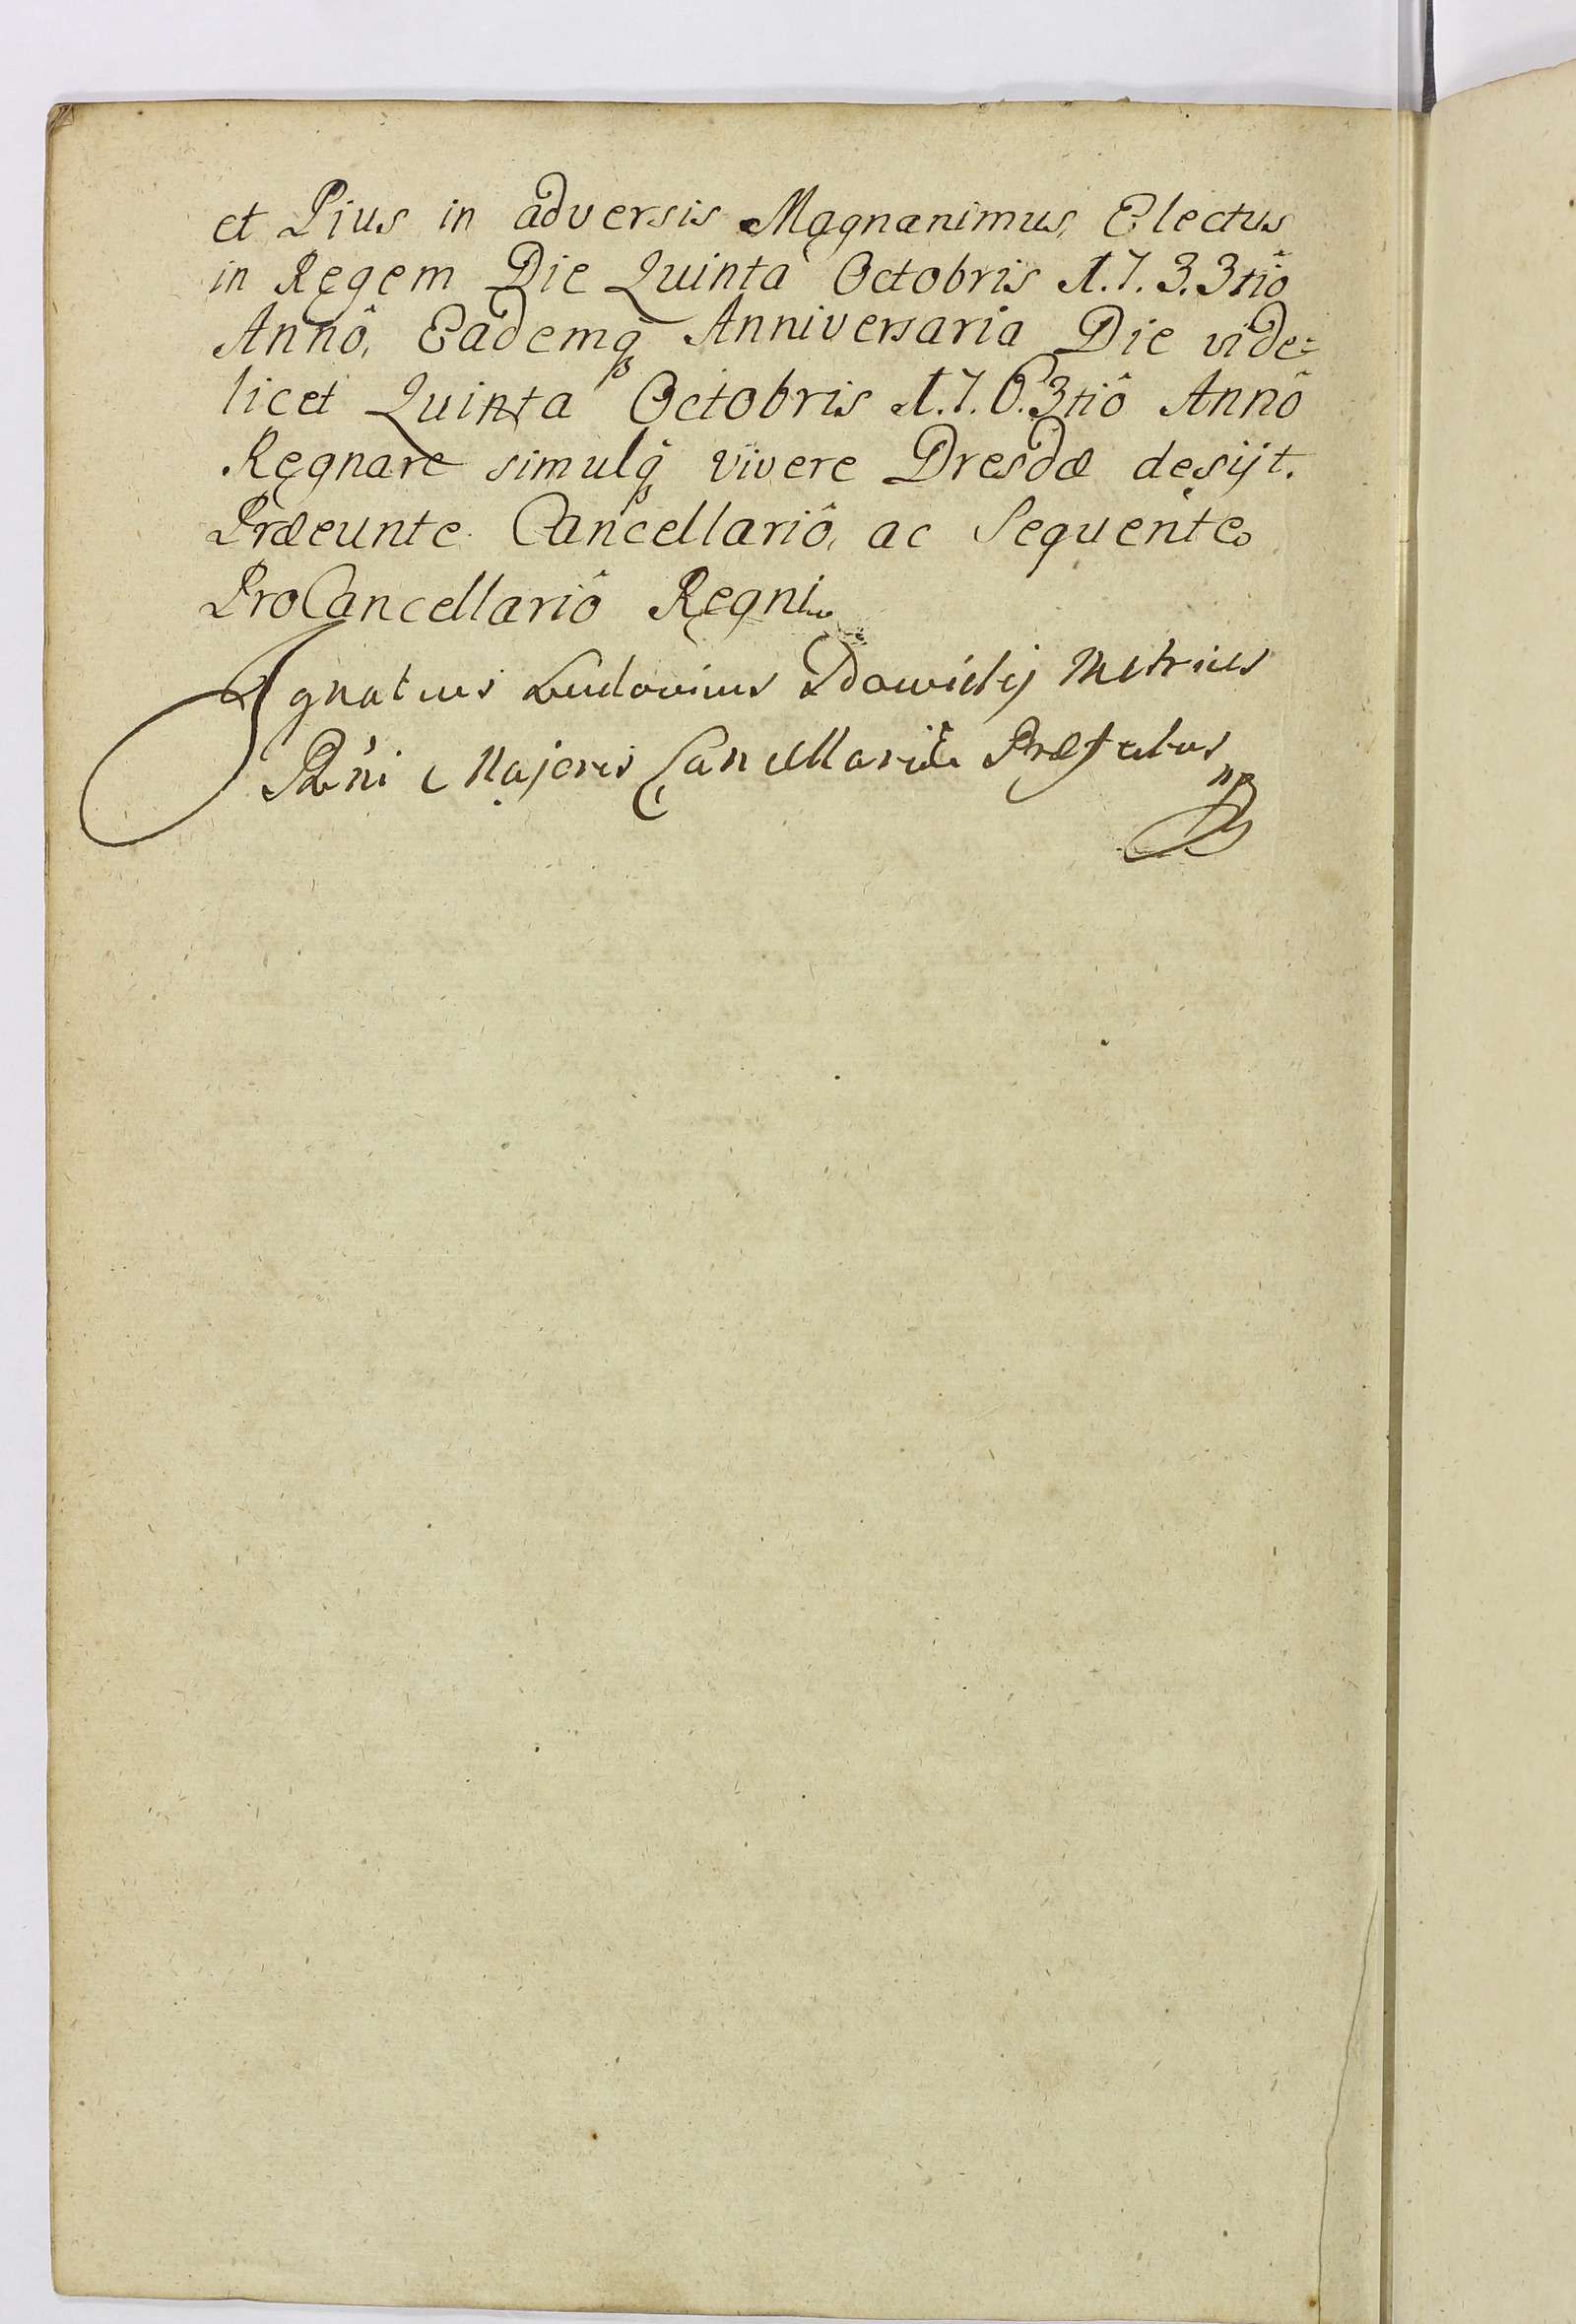 et Pius in adversis Magnanimus, Electus
in Regem Die Quinta Octobris 1.7.3.3tiô
Annô, Eademq₃ Anniversaria Die vide=
licet Quinta Octobris 1.7.6.3tiô Annô
Regnare simulq₃ vivere Dresdæ desijt.
Præeunte Cancellariô, ac Sequente
ProCancellariô Regni
Ignatius Ludovicus Dawidÿ Metrices
Rni Majoris Cancellariæ Præfectus
mp